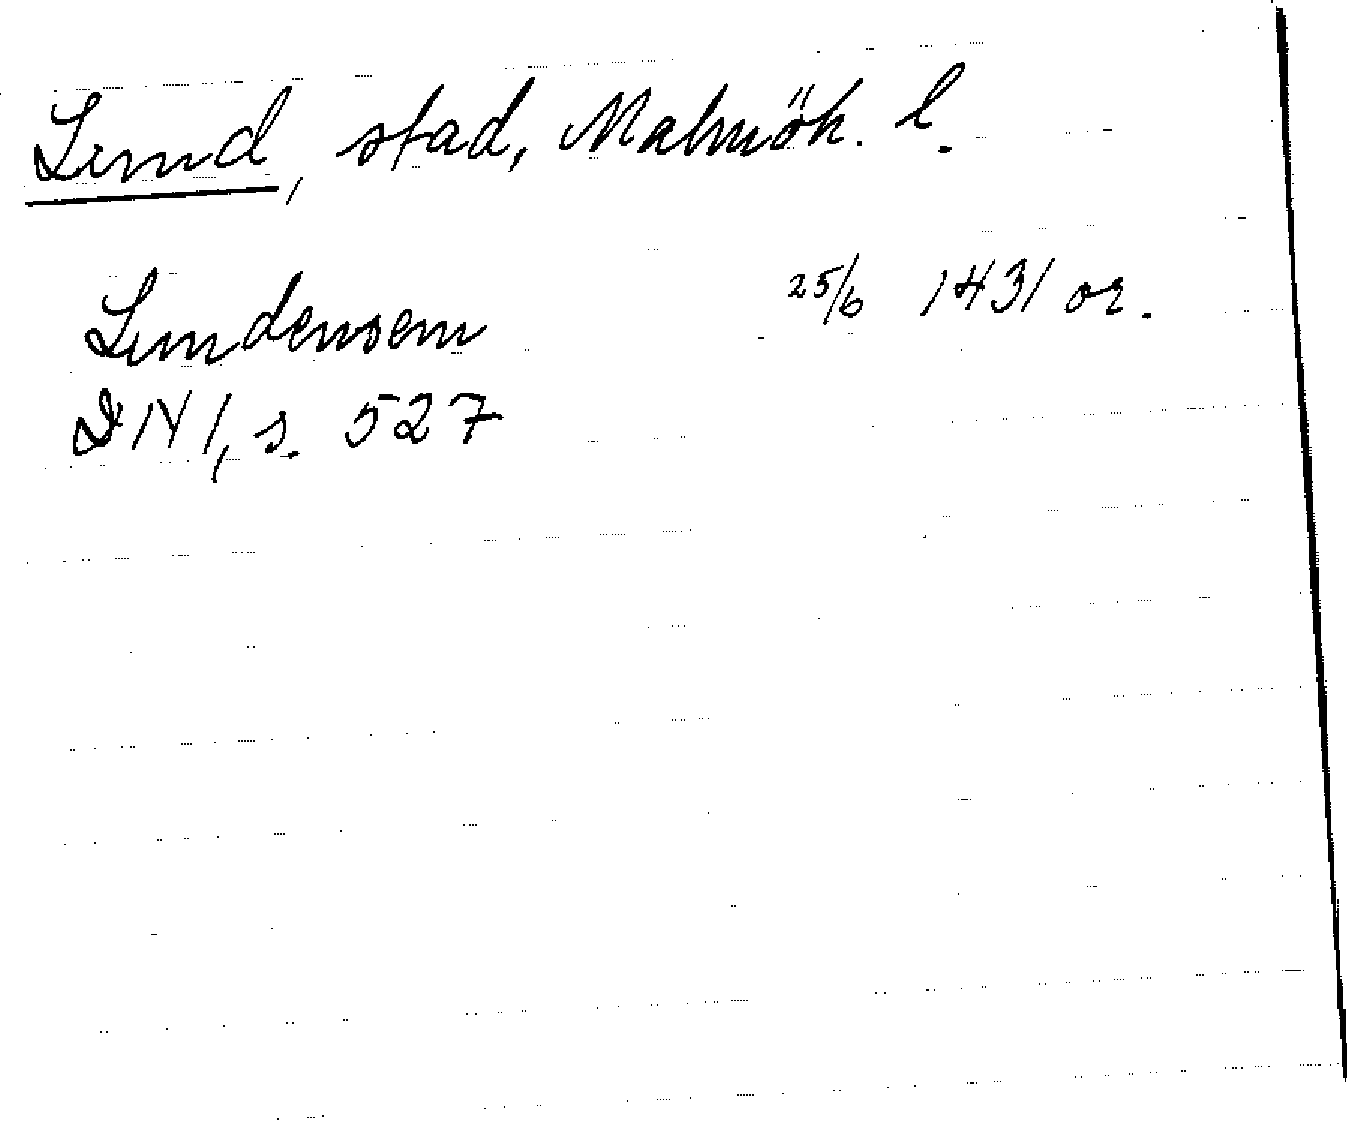 Lund, stad, Malmöh. l.
Lundensem 25/6 1431 or.
DN 1, s. 527